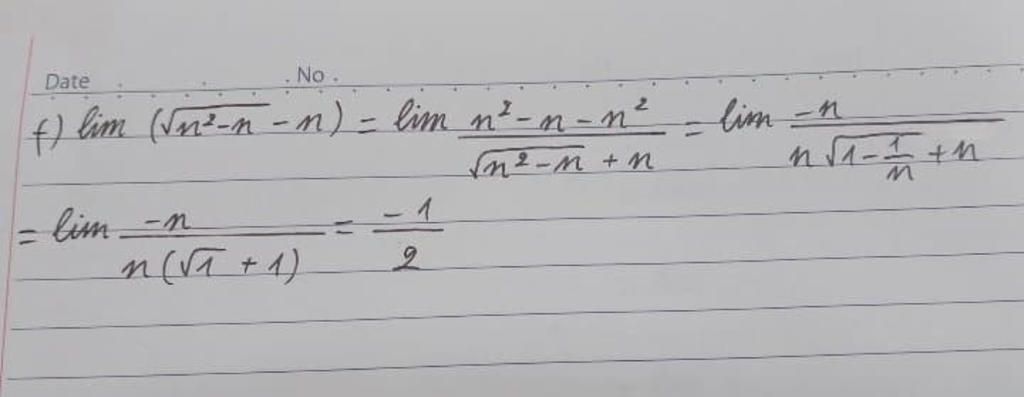 Date No.
f) lim (√(n²-n) - n) = lim (n² - n - n²)/(√(n²-n) + n) = lim (-n)/(n√(1-1/n) + n)
= lim (-n)/(n(√1 + 1)) = (-1)/2